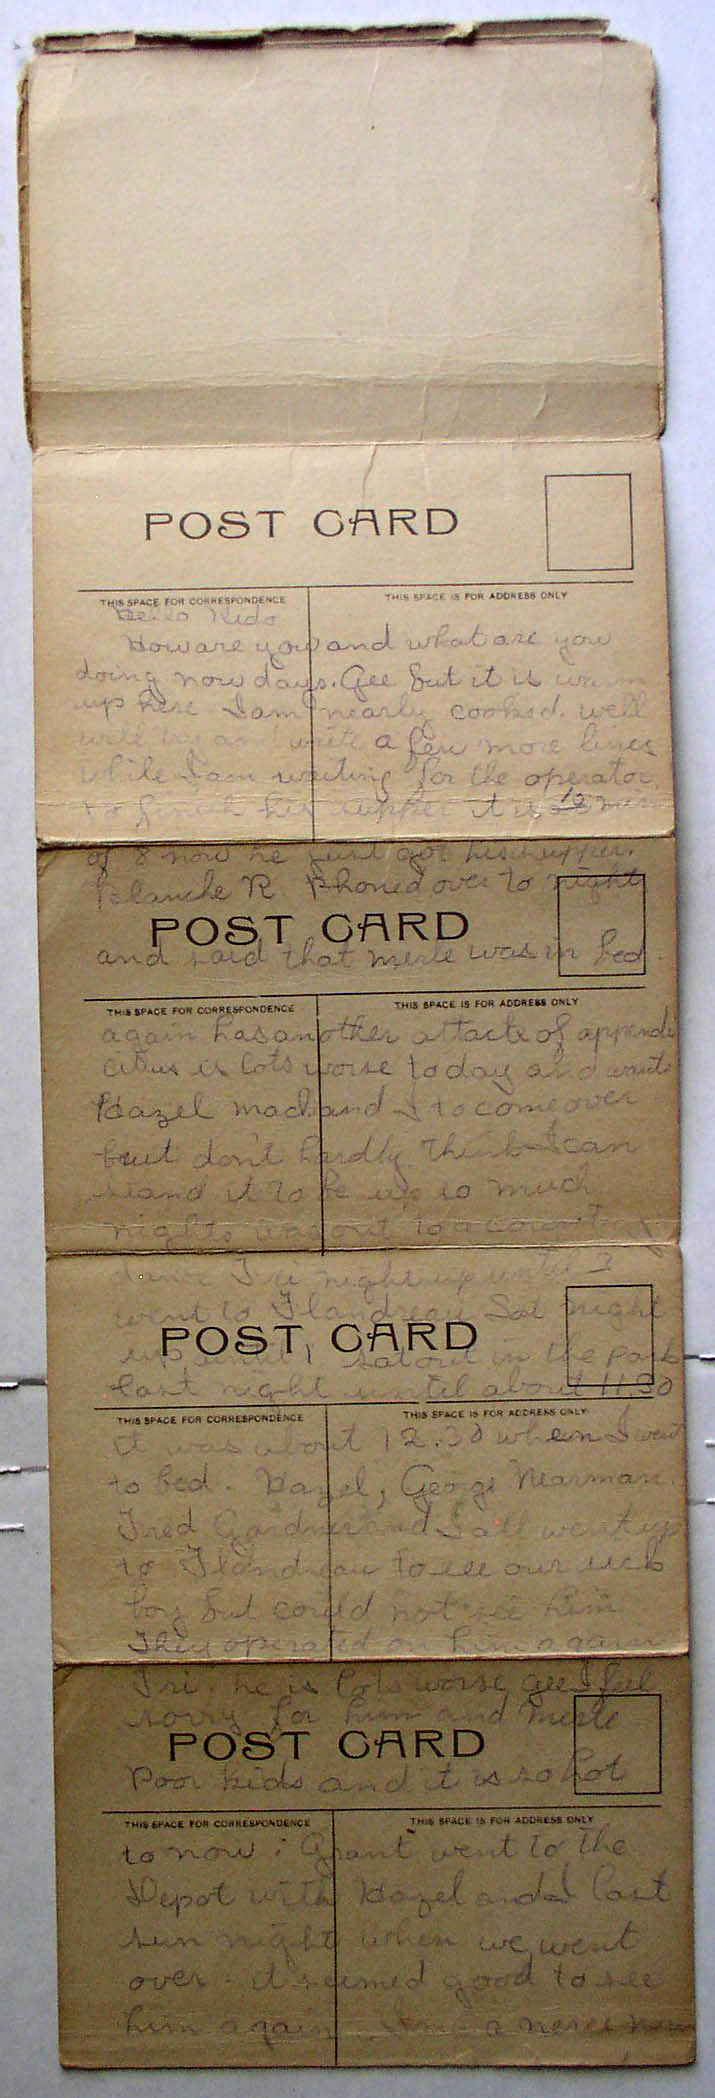 POST CARD
THIS SPACE FOR CORRESPONDENCE
THIS SPACE IS FOR ADDRESS ONLY
Hello Kido
How are you and what are you
doing now days. Gee but it is warm
up here I am nearly cooked. well
will try and write a few more lines
while I am waiting for the operator
to finish his supper it is 12 min
of 8 now he just got his supper.
Blanche R Phoned over to night
POST CARD
and said that Merle was in bed.
THIS SPACE FOR CORRESPONDENCE
THIS SPACE IS FOR ADDRESS ONLY
again has another attack of appendi
citus is lots worse today and wants
Hazel mac and I to come over
but don't hardly think I can
stand it to be up so much
nights was out to a country
dance Fri night up until 2
went to Flandreau Sat night
POST CARD
up until 1 sat out in the park
last night until about 11.30
THIS SPACE FOR CORRESPONDENCE
THIS SPACE IS FOR ADDRESS ONLY
it was about 12.30 when I went
to bed. Hazel, George Nearman.
Fred Gardner and I all went up
to Flandreau to see our sick
boy but could not see him
They operated on him again
Fri. he is lots worse, gee I feel
sorry for him and Merle
POST CARD
Poor kids and it is so hot
THIS SPACE FOR CORRESPONDENCE
THIS SPACE IS FOR ADDRESS ONLY
to now. Grant went to the
Depot with Hazel and I last
sun night when we went
over. it seemed good to see
him again